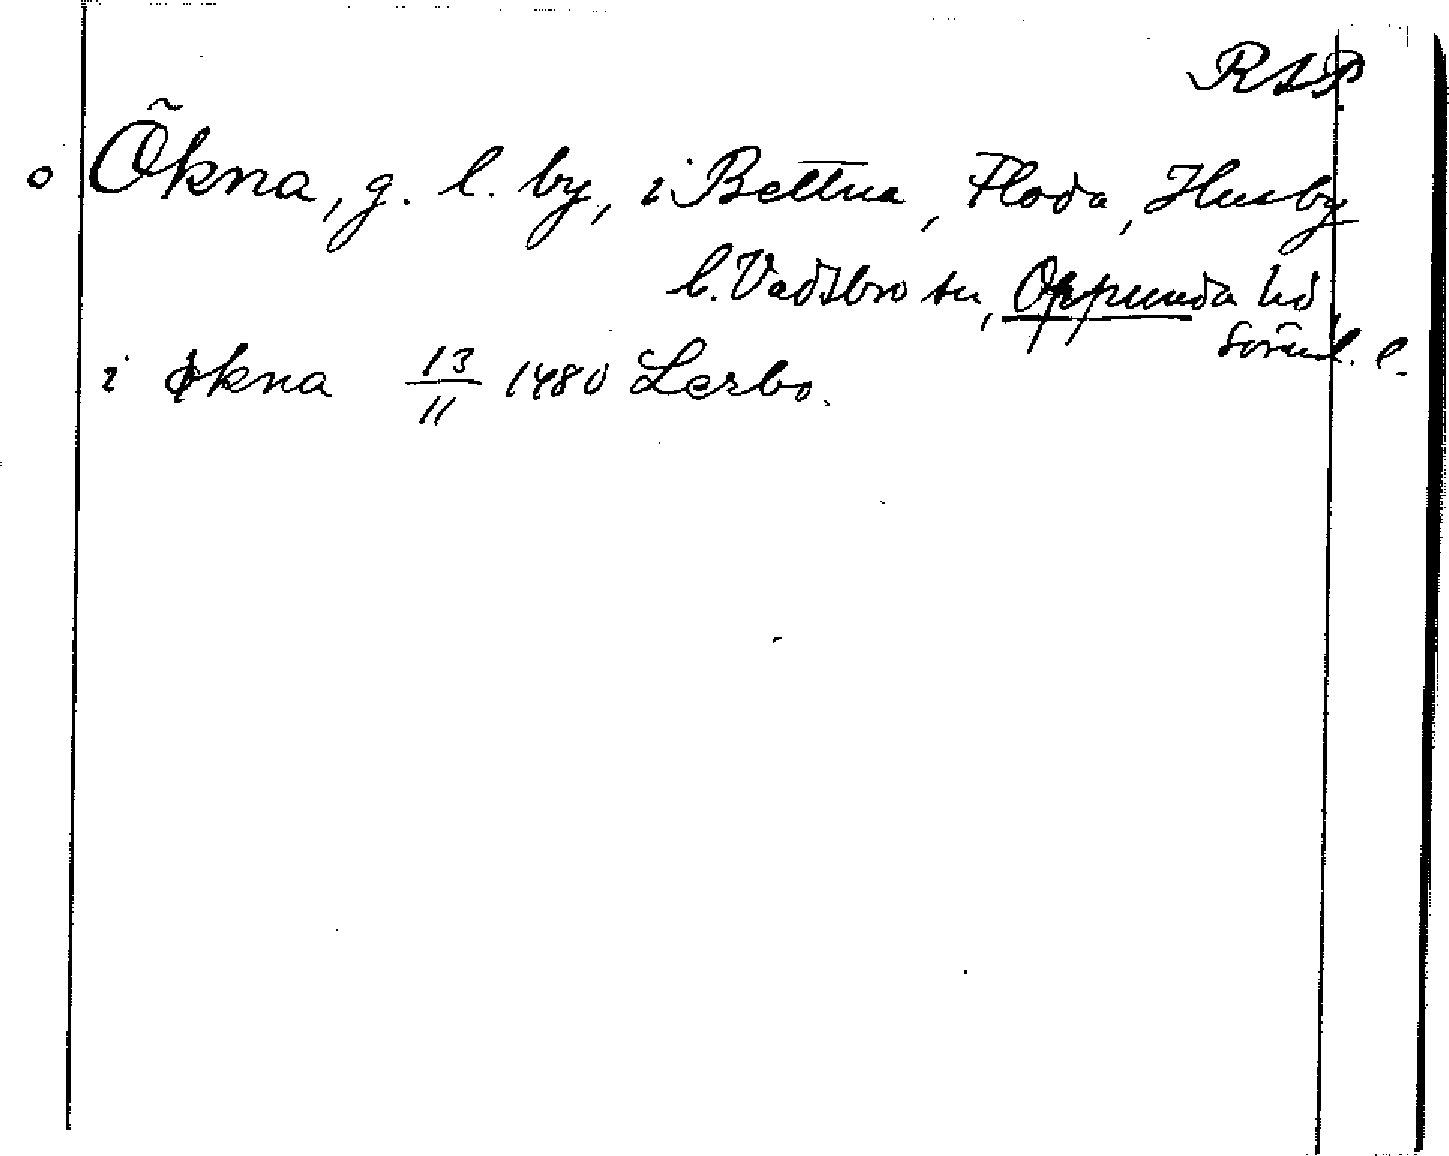 RAP
o Õkna, g. l. by, i Bettna, Floda, Husby
l. Vadsbro sn, Oppunda hd
Söderml. l.
i økna 13/11 1480 Lerbo.